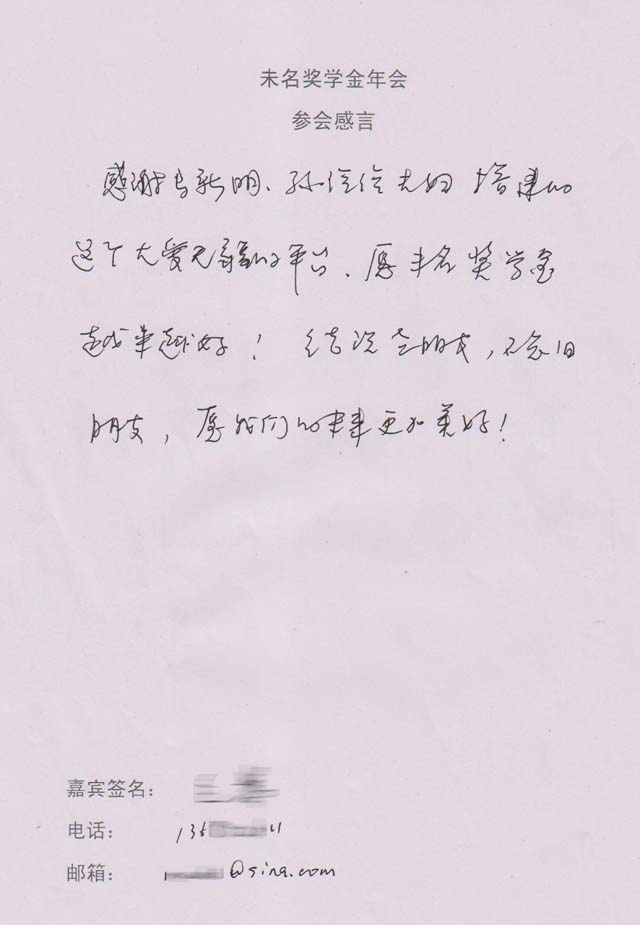 未名奖学金年会
参会感言
感谢马新明、孙依依夫妇搭建的
这个大爱无疆的平台、愿未名奖学金
越来越好！结识老朋友，不忘旧
朋友，愿我们的未来更加美好！
嘉宾签名：
电话：136
邮箱：@sina.com